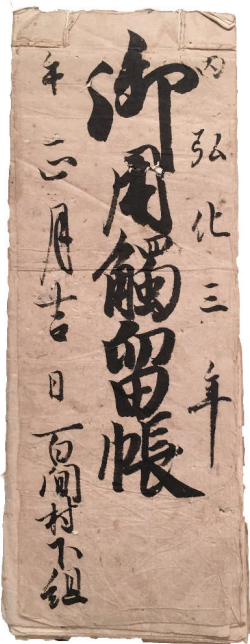 丙 弘化三年
御用觸留帳
午 正月吉日
百間村下組